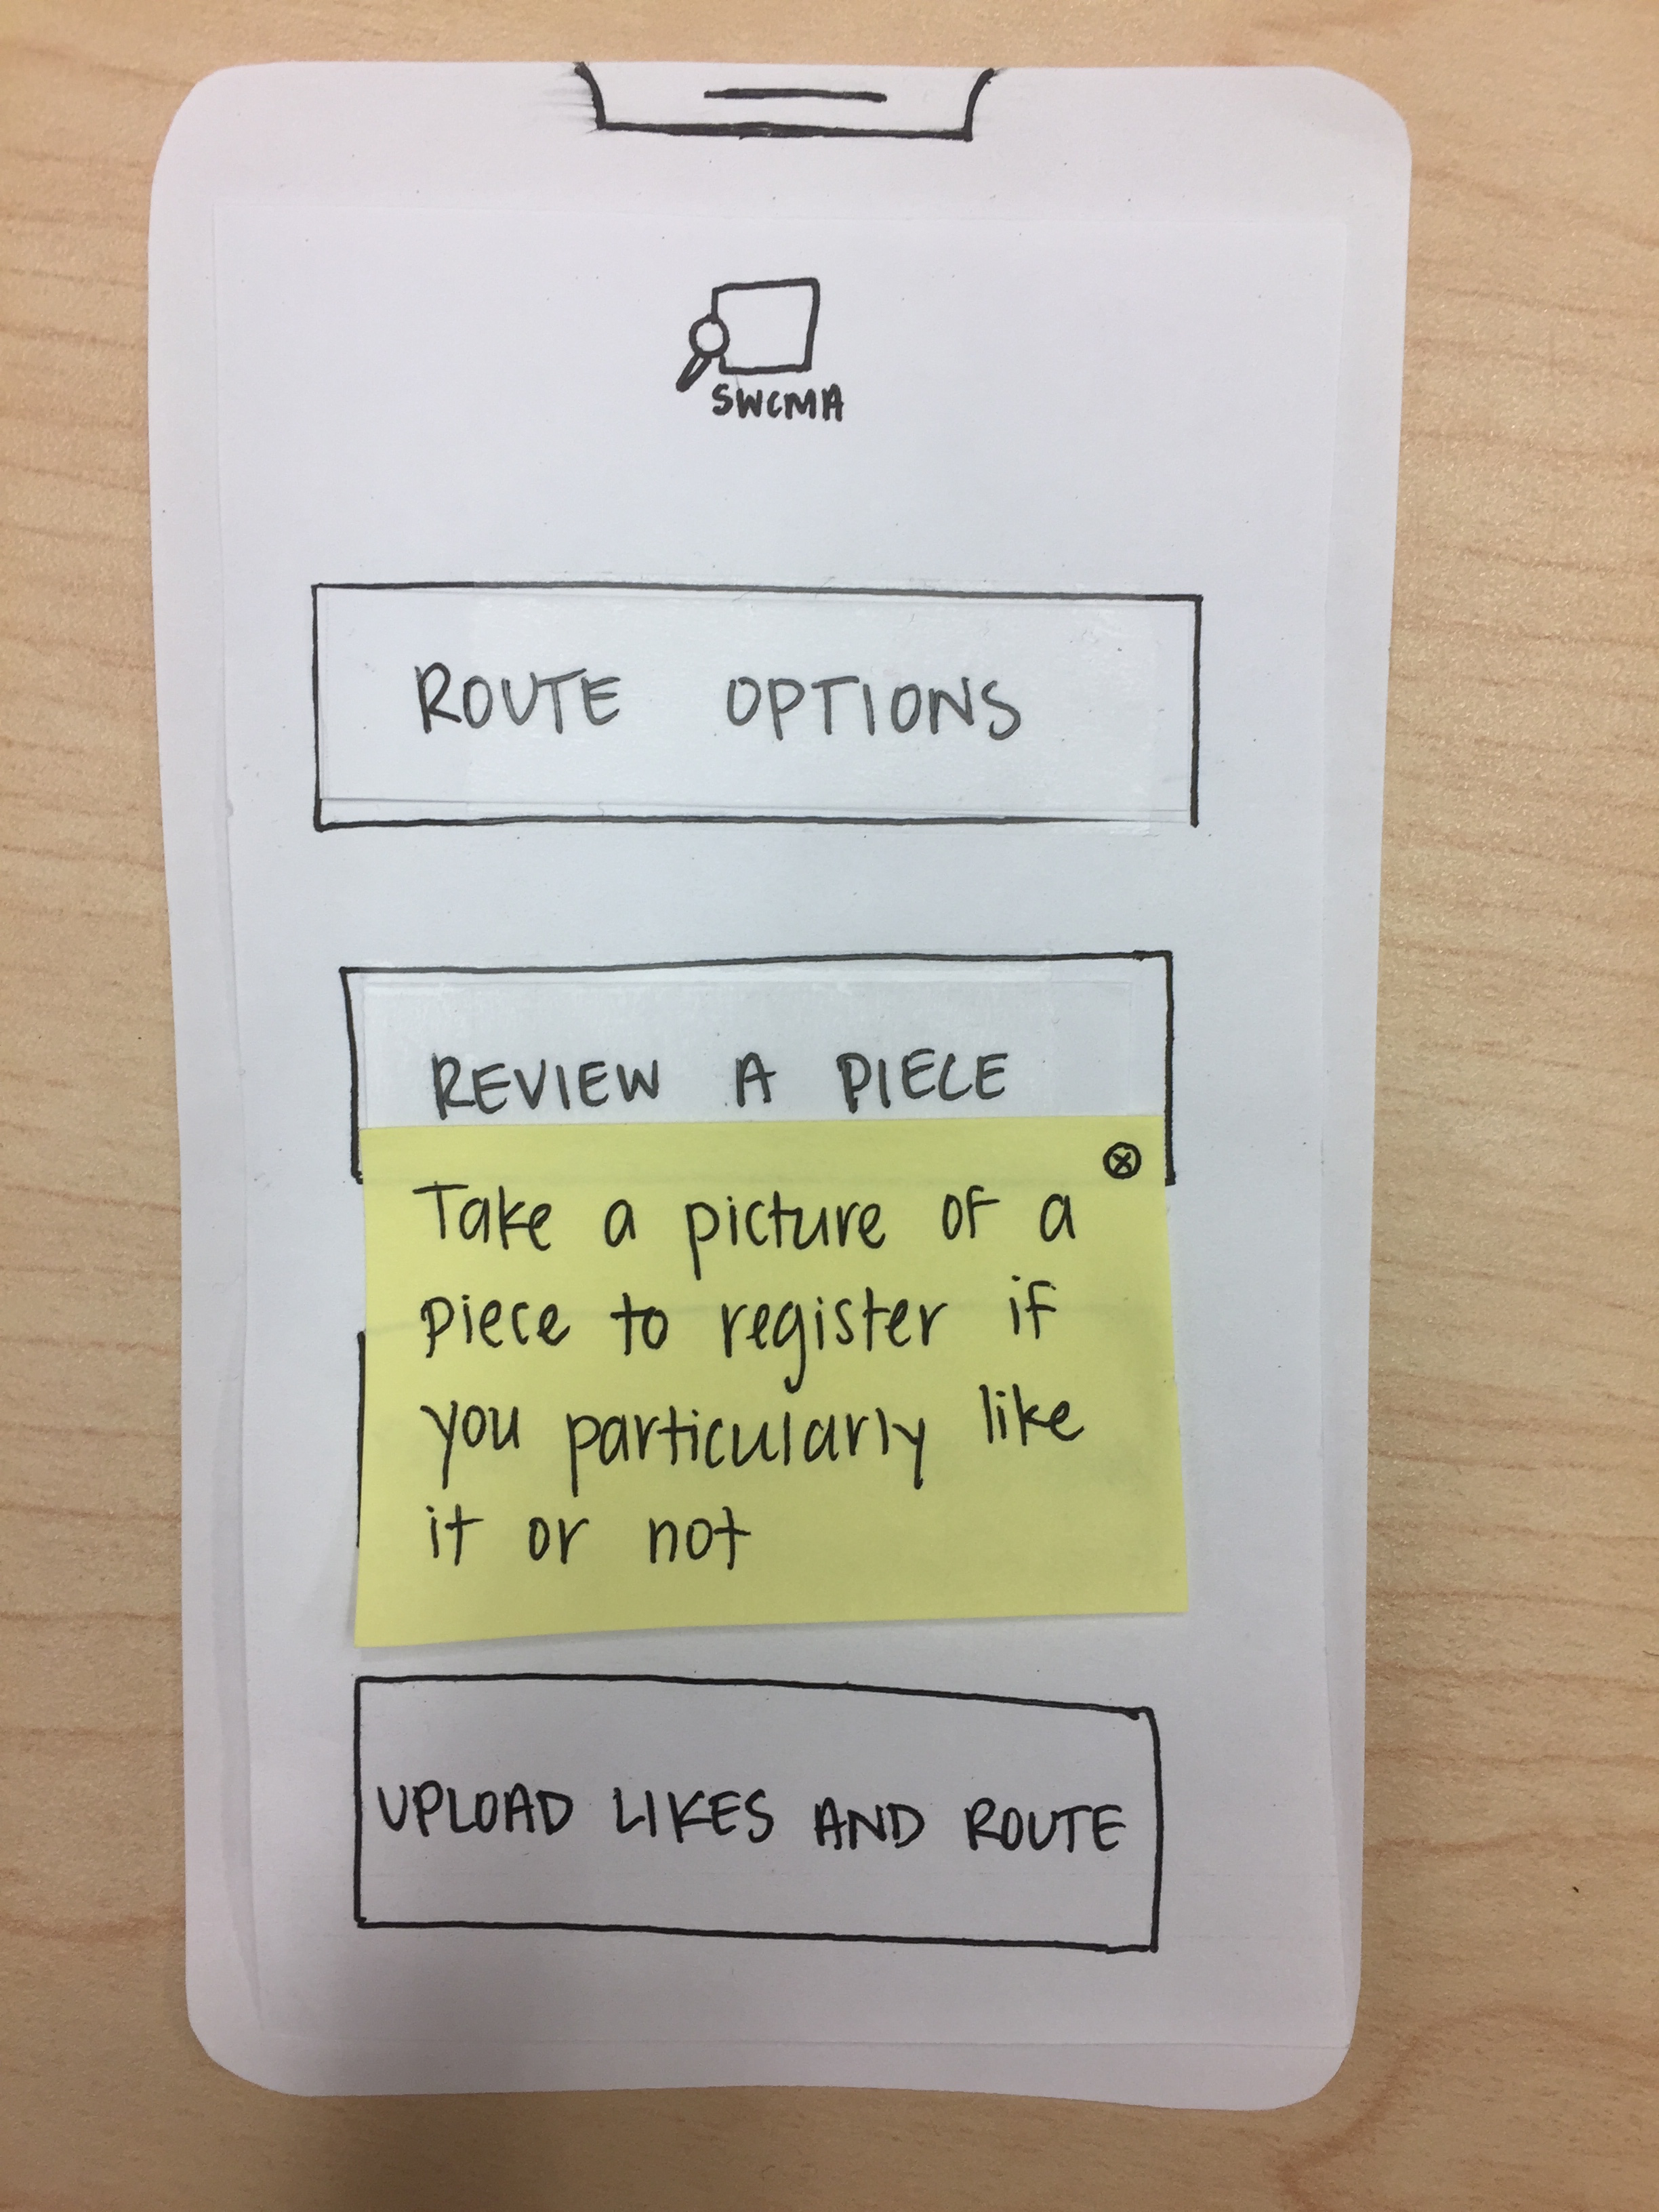 SWCMA
ROUTE OPTIONS
REVIEW A PIECE
Take a picture of a
piece to register if
you particularly like
it or not
UPLOAD LIKES AND ROUTE